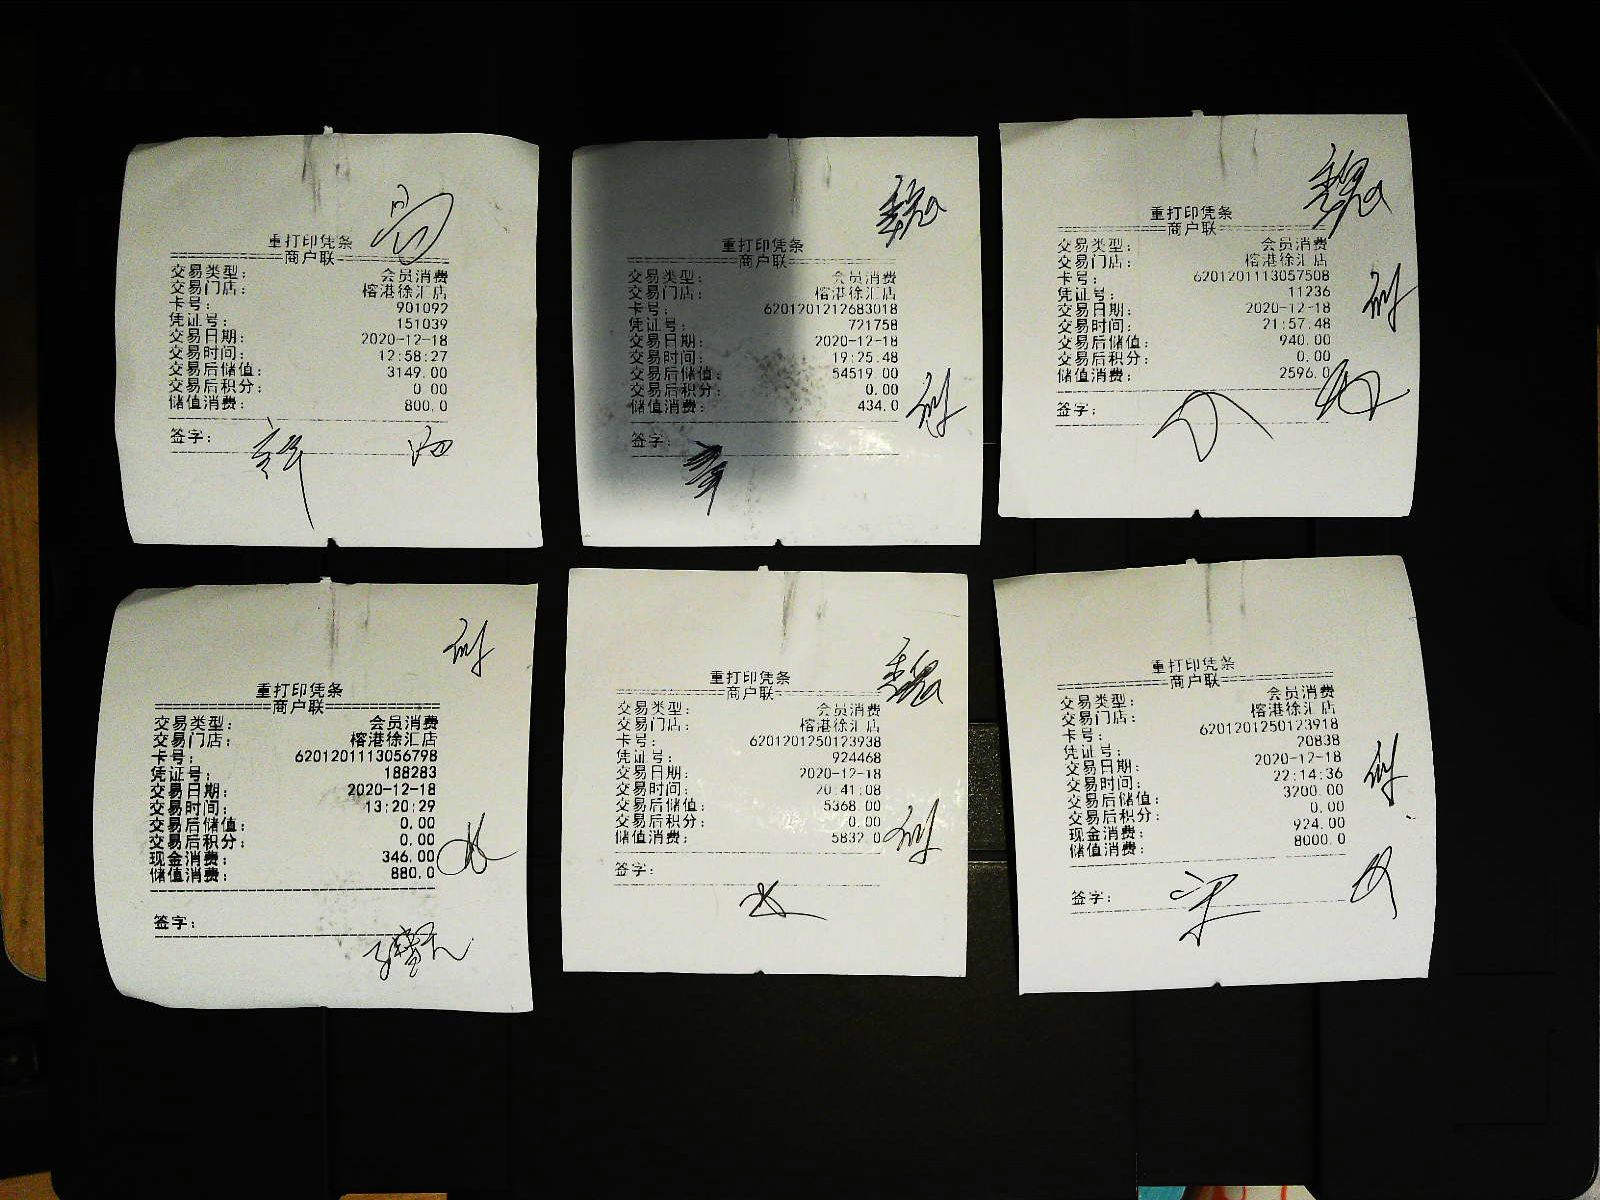 重打印凭条
商户联
交易类型: 会员消费
交易门店: 榕港徐汇店
卡号: 901092
凭证号: 151039
交易日期: 2020-12-18
交易时间: 12:58:27
交易后储值: 3149.00
交易后积分: 0.00
储值消费: 800.0
签字:
重打印凭条
商户联
交易类型: 会员消费
交易门店: 榕港徐汇店
卡号: 6201201212683018
凭证号: 721758
交易日期: 2020-12-18
交易时间: 19:25.48
交易后储值: 54519.00
交易后积分: 0.00
储值消费: 434.0
签字:
重打印凭条
商户联
交易类型: 会员消费
交易门店: 榕港徐汇店
卡号: 6201201113057508
凭证号: 11236
交易日期: 2020-12-18
交易时间: 21:57.48
交易后储值: 940.00
交易后积分: 0.00
储值消费: 2596.0
签字:
重打印凭条
商户联
交易类型: 会员消费
交易门店: 榕港徐汇店
卡号: 6201201113056798
凭证号: 188283
交易日期: 2020-12-18
交易时间: 13:20:29
交易后储值: 0.00
交易后积分: 0.00
现金消费: 346.00
储值消费: 880.0
签字:
重打印凭条
商户联
交易类型: 会员消费
交易门店: 榕港徐汇店
卡号: 6201201250123938
凭证号: 924468
交易日期: 2020-12-18
交易时间: 20:41:08
交易后储值: 5368.00
交易后积分: 0.00
储值消费: 5832.0
签字:
重打印凭条
商户联
交易类型: 会员消费
交易门店: 榕港徐汇店
卡号: 6201201250123918
凭证号: 20838
交易日期: 2020-12-18
交易时间: 22:14:36
交易后储值: 3200.00
交易后积分: 0.00
现金消费: 924.00
储值消费: 8000.0
签字: